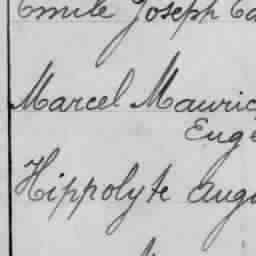 Emile Joseph Ca
Marcel Mauric
Euge
Hippolyte Augu